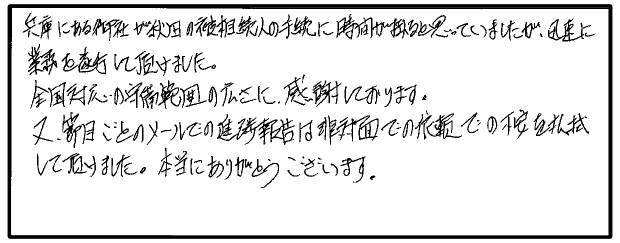 兵庫にある御社が秋田の被相続人の手続に時間が掛ると思っていましたが、迅速に
業務を遂行して頂けました。
全国対応の守備範囲の広さに、感謝しております。
又、節目ごとのメールでの進捗報告は非対面での依頼での不安を払拭
して頂けました。本当にありがとうございます。